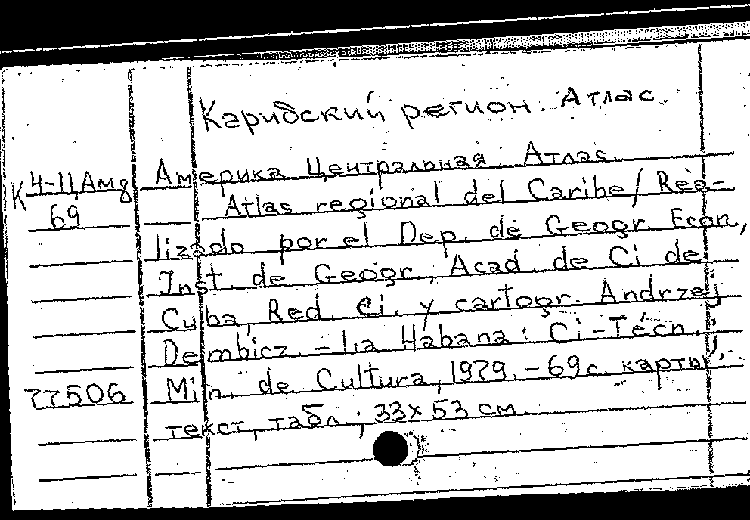 Карибский регион. Атлас.
К 4-ЦАм8
69
Америка Центральная Атлас
Atlas regional del Caribe / Rea-
lizado por el Dep. de Geogr. Econ.,
Inst. de Geogr., Acad. de Ci de
Cuba, Red. ci. y cartogr. Andrzej
Dembicz. - La Habana: Ci-Técn.;
77506
Min. de Cultura, 1979. - 69 с. карты,
текст, табл.; 33x53 см.